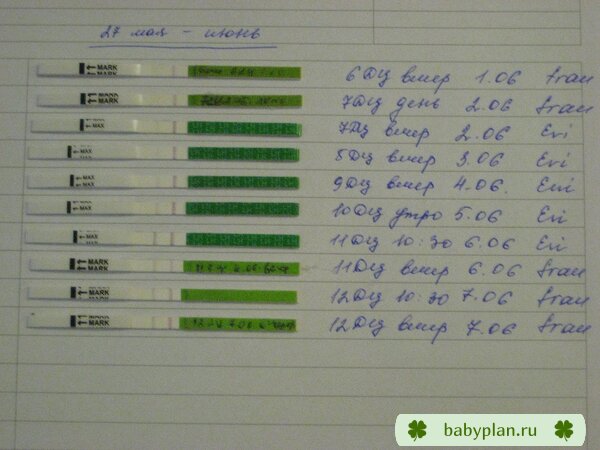 27 мая - июнь
MARK 6 ДЦ вечер 1.06 Frau
MARK 7 ДЦ день 2.06 Frau
MAX 7 ДЦ вечер 2.06 Evi
MAX 8 ДЦ вечер 3.06 Evi
MAX 9 ДЦ вечер 4.06. Evi
MAX 10 ДЦ утро 5.06 Evi
MAX 11 ДЦ 10:30 6.06 Evi
MARK 11 ДЦ вечер 6.06 Frau
MARK 12 ДЦ 10:30 7.06 Frau
MARK 12 ДЦ вечер 7.06 Frau
babyplan.ru